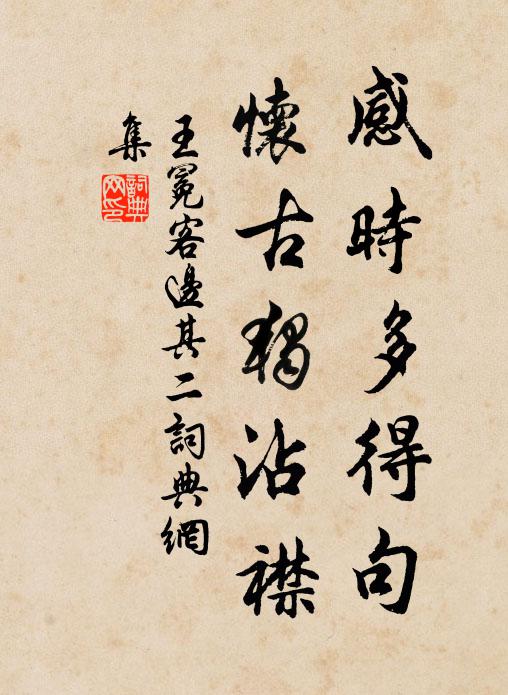 感時多得句
懷古獨沾襟
王冕客邊其二詞典網
集
詞典
网印